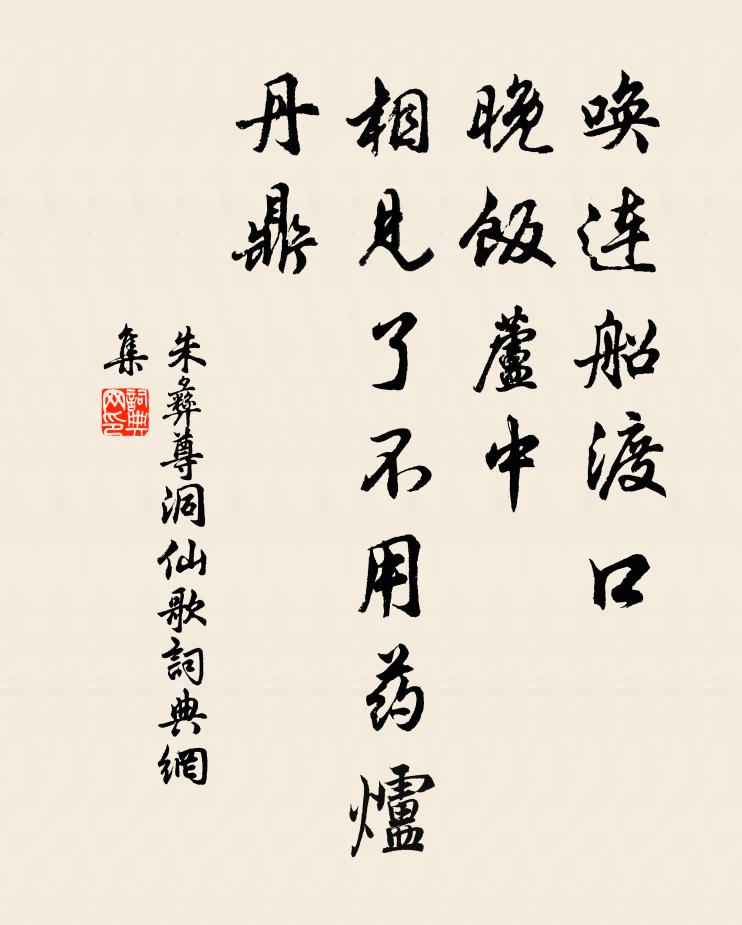 唤连船渡口
晚饭蘆中
相见了不用药爐
丹鼎
朱彝尊洞仙歌詞典網
集
詞典网印